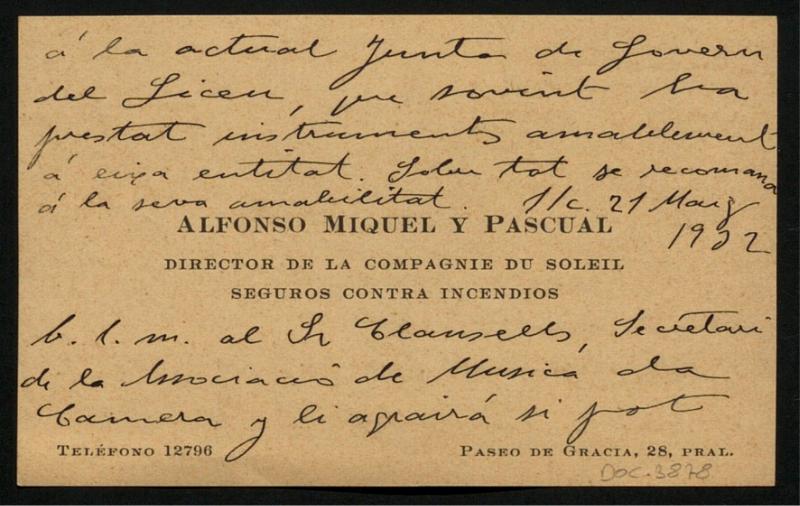 á la actual Junta de Govern
del Liceu, que sovint ha
prestat instruments amablement
á eixa entitat. Sobre tot se recomana
á la seva amabilitat. S/c. 21 Març
1932
ALFONSO MIQUEL Y PASCUAL
DIRECTOR DE LA COMPAGNIE DU SOLEIL
SEGUROS CONTRA INCENDIOS
b. l. m. al Sr Clausells, Secretari
de la Associació de Musica da
Camera y li agrairá si pot
TELÉFONO 12796
PASEO DE GRACIA, 28, PRAL.
DOC. 3878